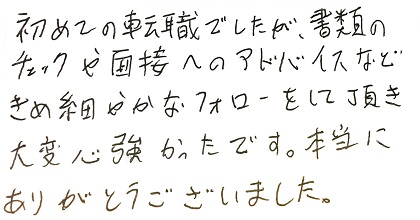 初めての転職でしたが、書類の
チェックや面接へのアドバイスなど
きめ細やかなフォローをして頂き
大変心強かったです。本当に
ありがとうございました。